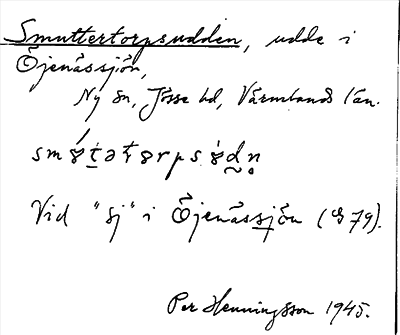 Smuttertorpsudden, udde i
Öjenässjön,
Ny sn, Jösse hd, Värmlands län.
Vid "sj" i Öjenässjön (79).
Per Henningsson 1945.